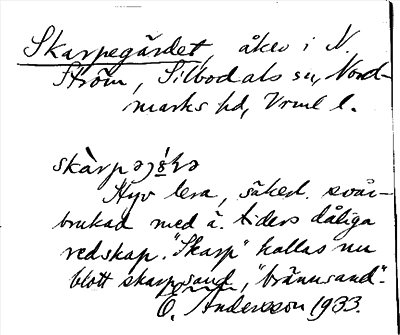 Skarpegärdet, åker i N.
Ström, Silbodals sn, Nord-
marks hd, Vrml l.
Styv lera, säkerl. svår-
brukad med ä. tiders dåliga
redskap. "Skarp" kallas nu
blott skarp sand, "brännsand".
O. Andersson 1933.